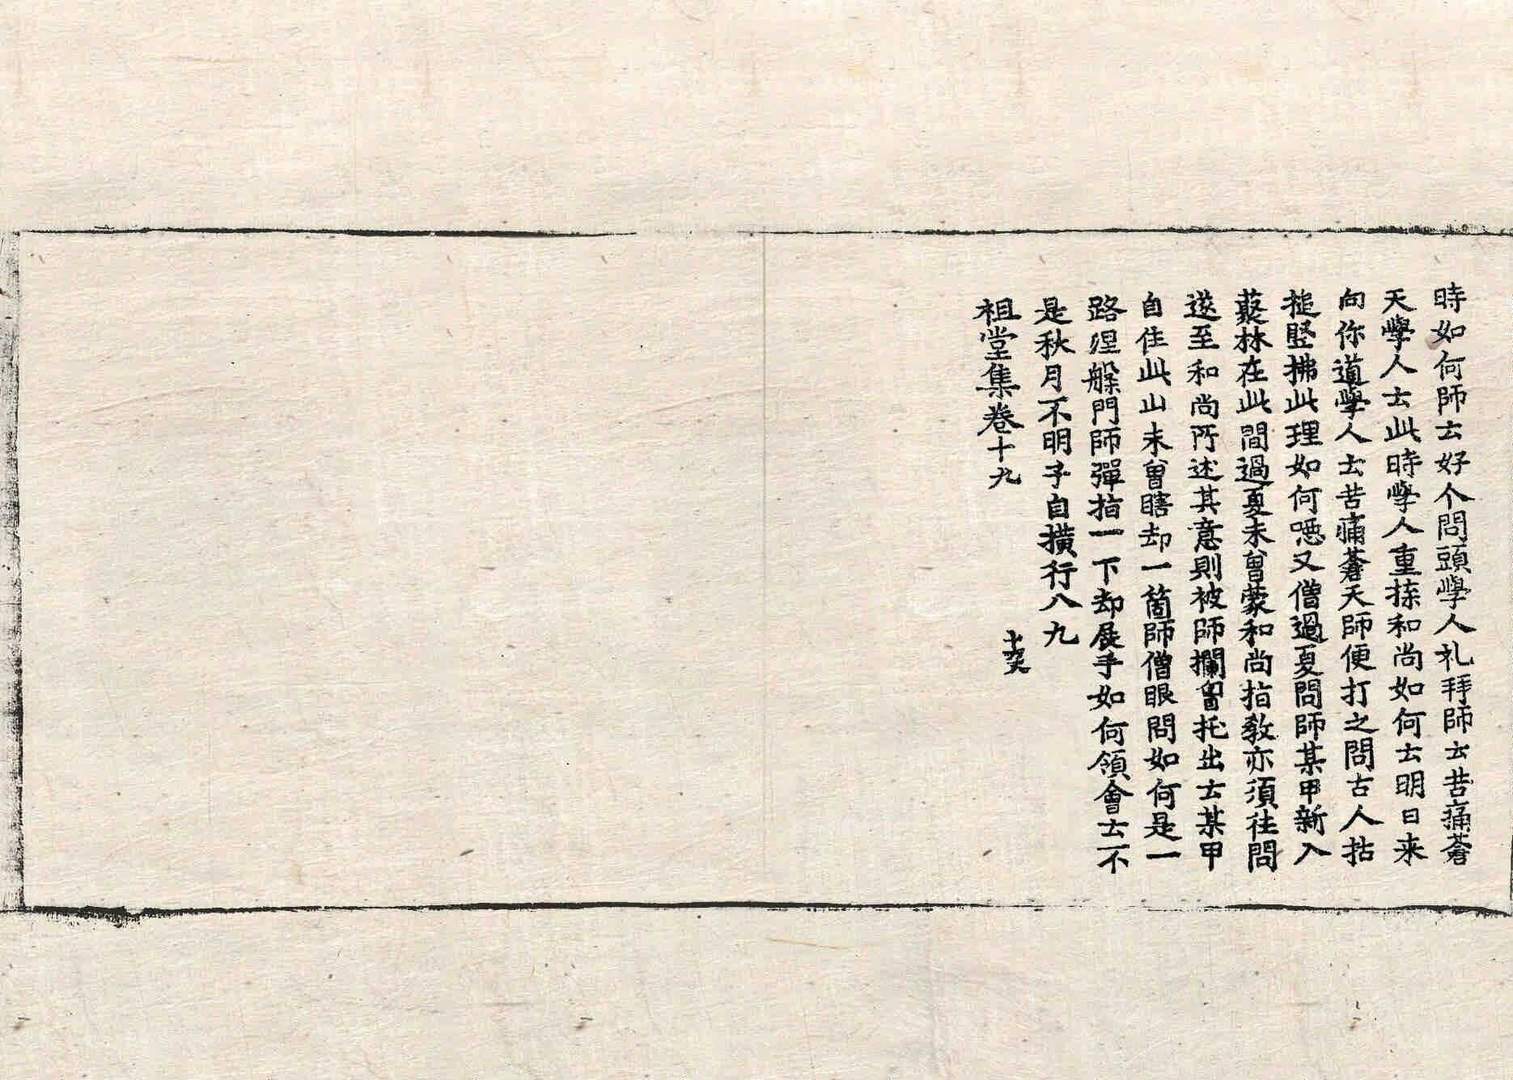 時如何師云好个問頭學人礼拜師云苦痛蒼
天學人云此時學人重挊和尚如何云明日来
向你道學人云苦痛蒼天師便打之問古人拈
搥竪拂此理如何師云又僧過夏問師某甲新入
藂林在此間過夏未曾蒙和尚指教亦須往問
遂至和尚所述其意則被師攔胷托出云某甲
自住此山未曾瞎却一箇師僧眼問如何是一
路涅槃門師彈指一下却展手如何領會云不
是秋月不明子自橫行八九
祖堂集卷十九